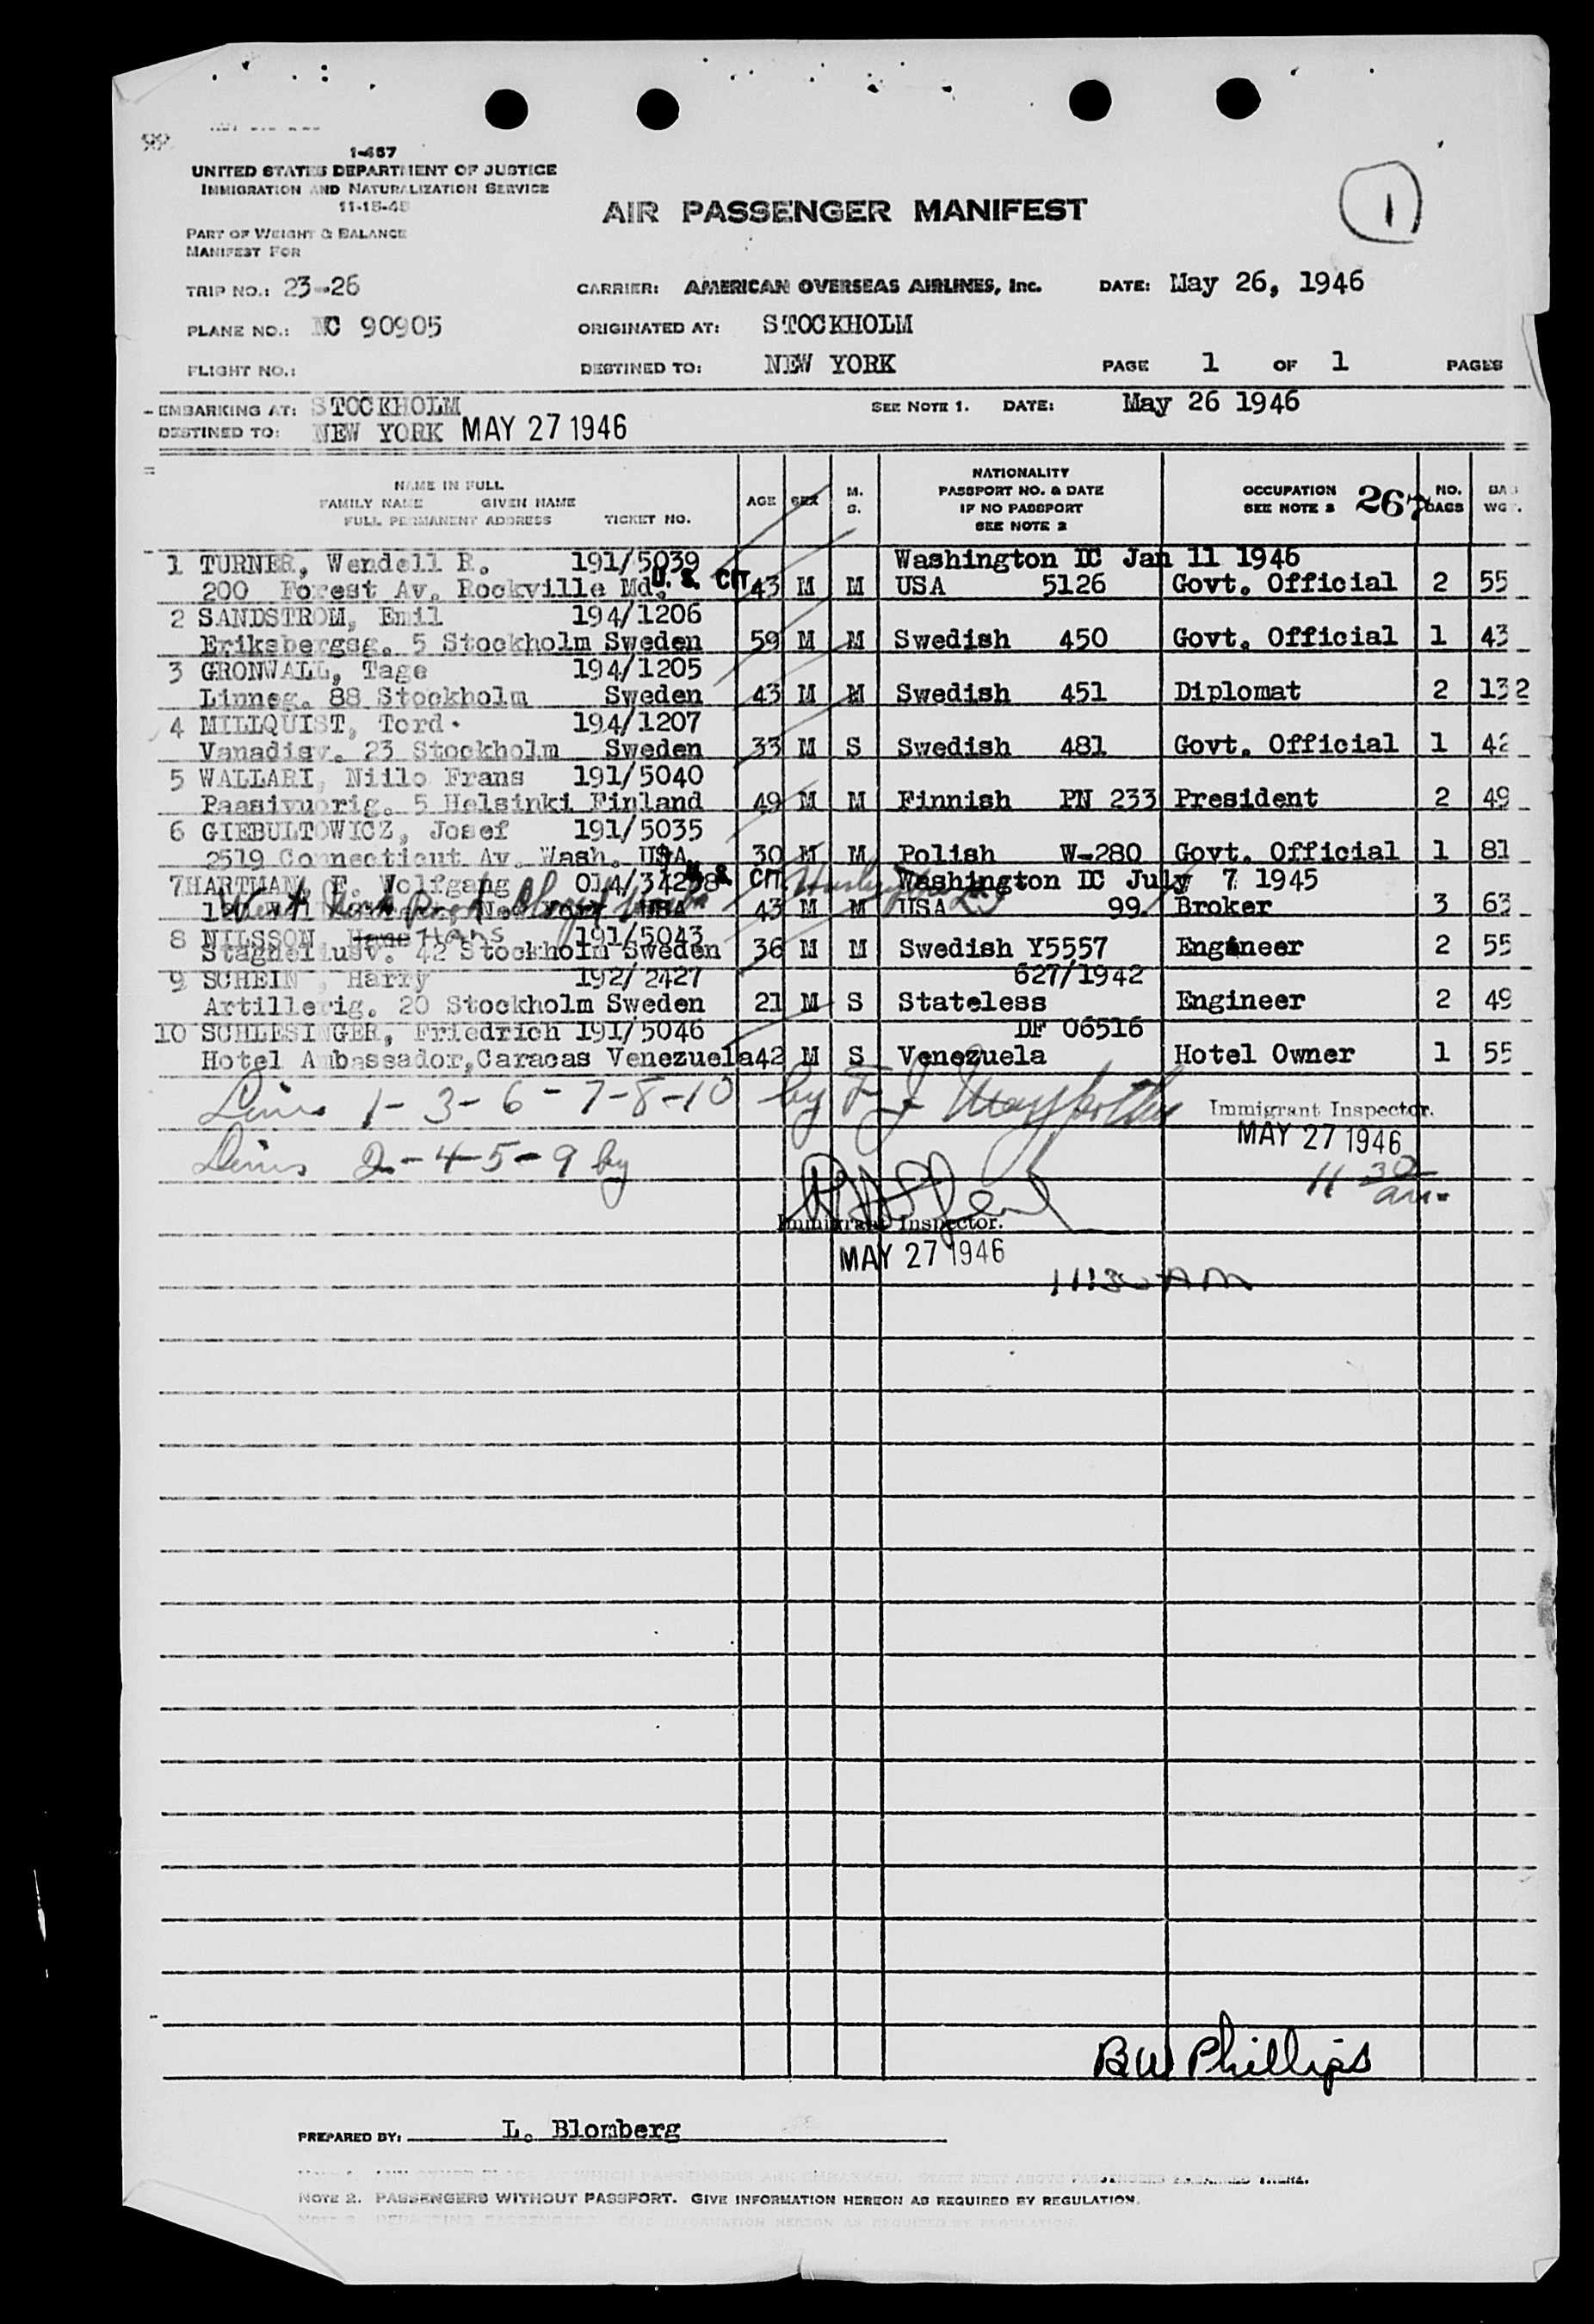 1-467
UNITED STATES DEPARTMENT OF JUSTICE
IMMIGRATION AND NATURALIZATION SERVICE
11-15-45
AIR PASSENGER MANIFEST
1
PART OF WEIGHT & BALANCE
MANIFEST FOR
TRIP NO.: 23-26 CARRIER: AMERICAN OVERSEAS AIRLINES, Inc. DATE: May 26, 1946
PLANE NO.: NC 90905 ORIGINATED AT: STOCKHOLM
FLIGHT NO.: DESTINED TO: NEW YORK PAGE 1 OF 1 PAGES
EMBARKING AT: STOCKHOLM SEE NOTE 1. DATE: May 26 1946
DESTINED TO: NEW YORK MAY 27 1946
NAME IN FULL
FAMILY NAME GIVEN NAME
FULL PERMANENT ADDRESS TICKET NO.
AGE SEX M. S.
NATIONALITY
PASSPORT NO. & DATE
IF NO PASSPORT
SEE NOTE 2
OCCUPATION
SEE NOTE 3
267
NO. BAGS
BAG WGT.
1 TURNER, Wendell R. 191/5039 Washington DC Jan 11 1946
200 Forest Av. Rockville Md. U. S. CIT 43 M M USA 5126 Govt. Official 2 55
2 SANDSTROM, Emil 194/1206
Eriksbergsg. 5 Stockholm Sweden 59 M M Swedish 450 Govt. Official 1 43
3 GRONWALL, Tage 194/1205
Linneg. 88 Stockholm Sweden 43 M M Swedish 451 Diplomat 2 132
4 MILLQUIST, Tord 194/1207
Vanadisv. 23 Stockholm Sweden 33 M S Swedish 481 Govt. Official 1 42
5 WALLARI, Niilo Frans 191/5040
Paasivuorig. 5 Helsinki Finland 49 M M Finnish PN 233 President 2 49
6 GIEBULTOWICZ, Josef 191/5035
2519 Connecticut Av. Wash. USA 30 M M Polish W-280 Govt. Official 1 81
7 HARTMAN, F. Wolfgang 014/34298 U. S. CIT. Washington DC July 7 1945
New York USA 43 M M USA 99. Broker 3 63
8 NILSSON, Hans Hans 191/5043
Stagneliusv. 42 Stockholm Sweden 36 M M Swedish Y5557 Engineer 2 55
9 SCHEIN, Harry 192/2427 627/1942
Artillerig. 20 Stockholm Sweden 21 M S Stateless Engineer 2 49
10 SCHLESINGER, Friedrich 191/5046 DF 06516
Hotel Ambassador, Caracas Venezuela 42 M S Venezuela Hotel Owner 1 55
Lines 1-3-6-7-8-10 by F J
Immigrant Inspector.
MAY 27 1946
11 30 am.
Lines 2-4-5-9 by
Immigrant Inspector.
MAY 27 1946
11:30 AM
BW Phillips
PREPARED BY: L. Blomberg
NOTE 2. PASSENGERS WITHOUT PASSPORT. GIVE INFORMATION HEREON AS REQUIRED BY REGULATION.